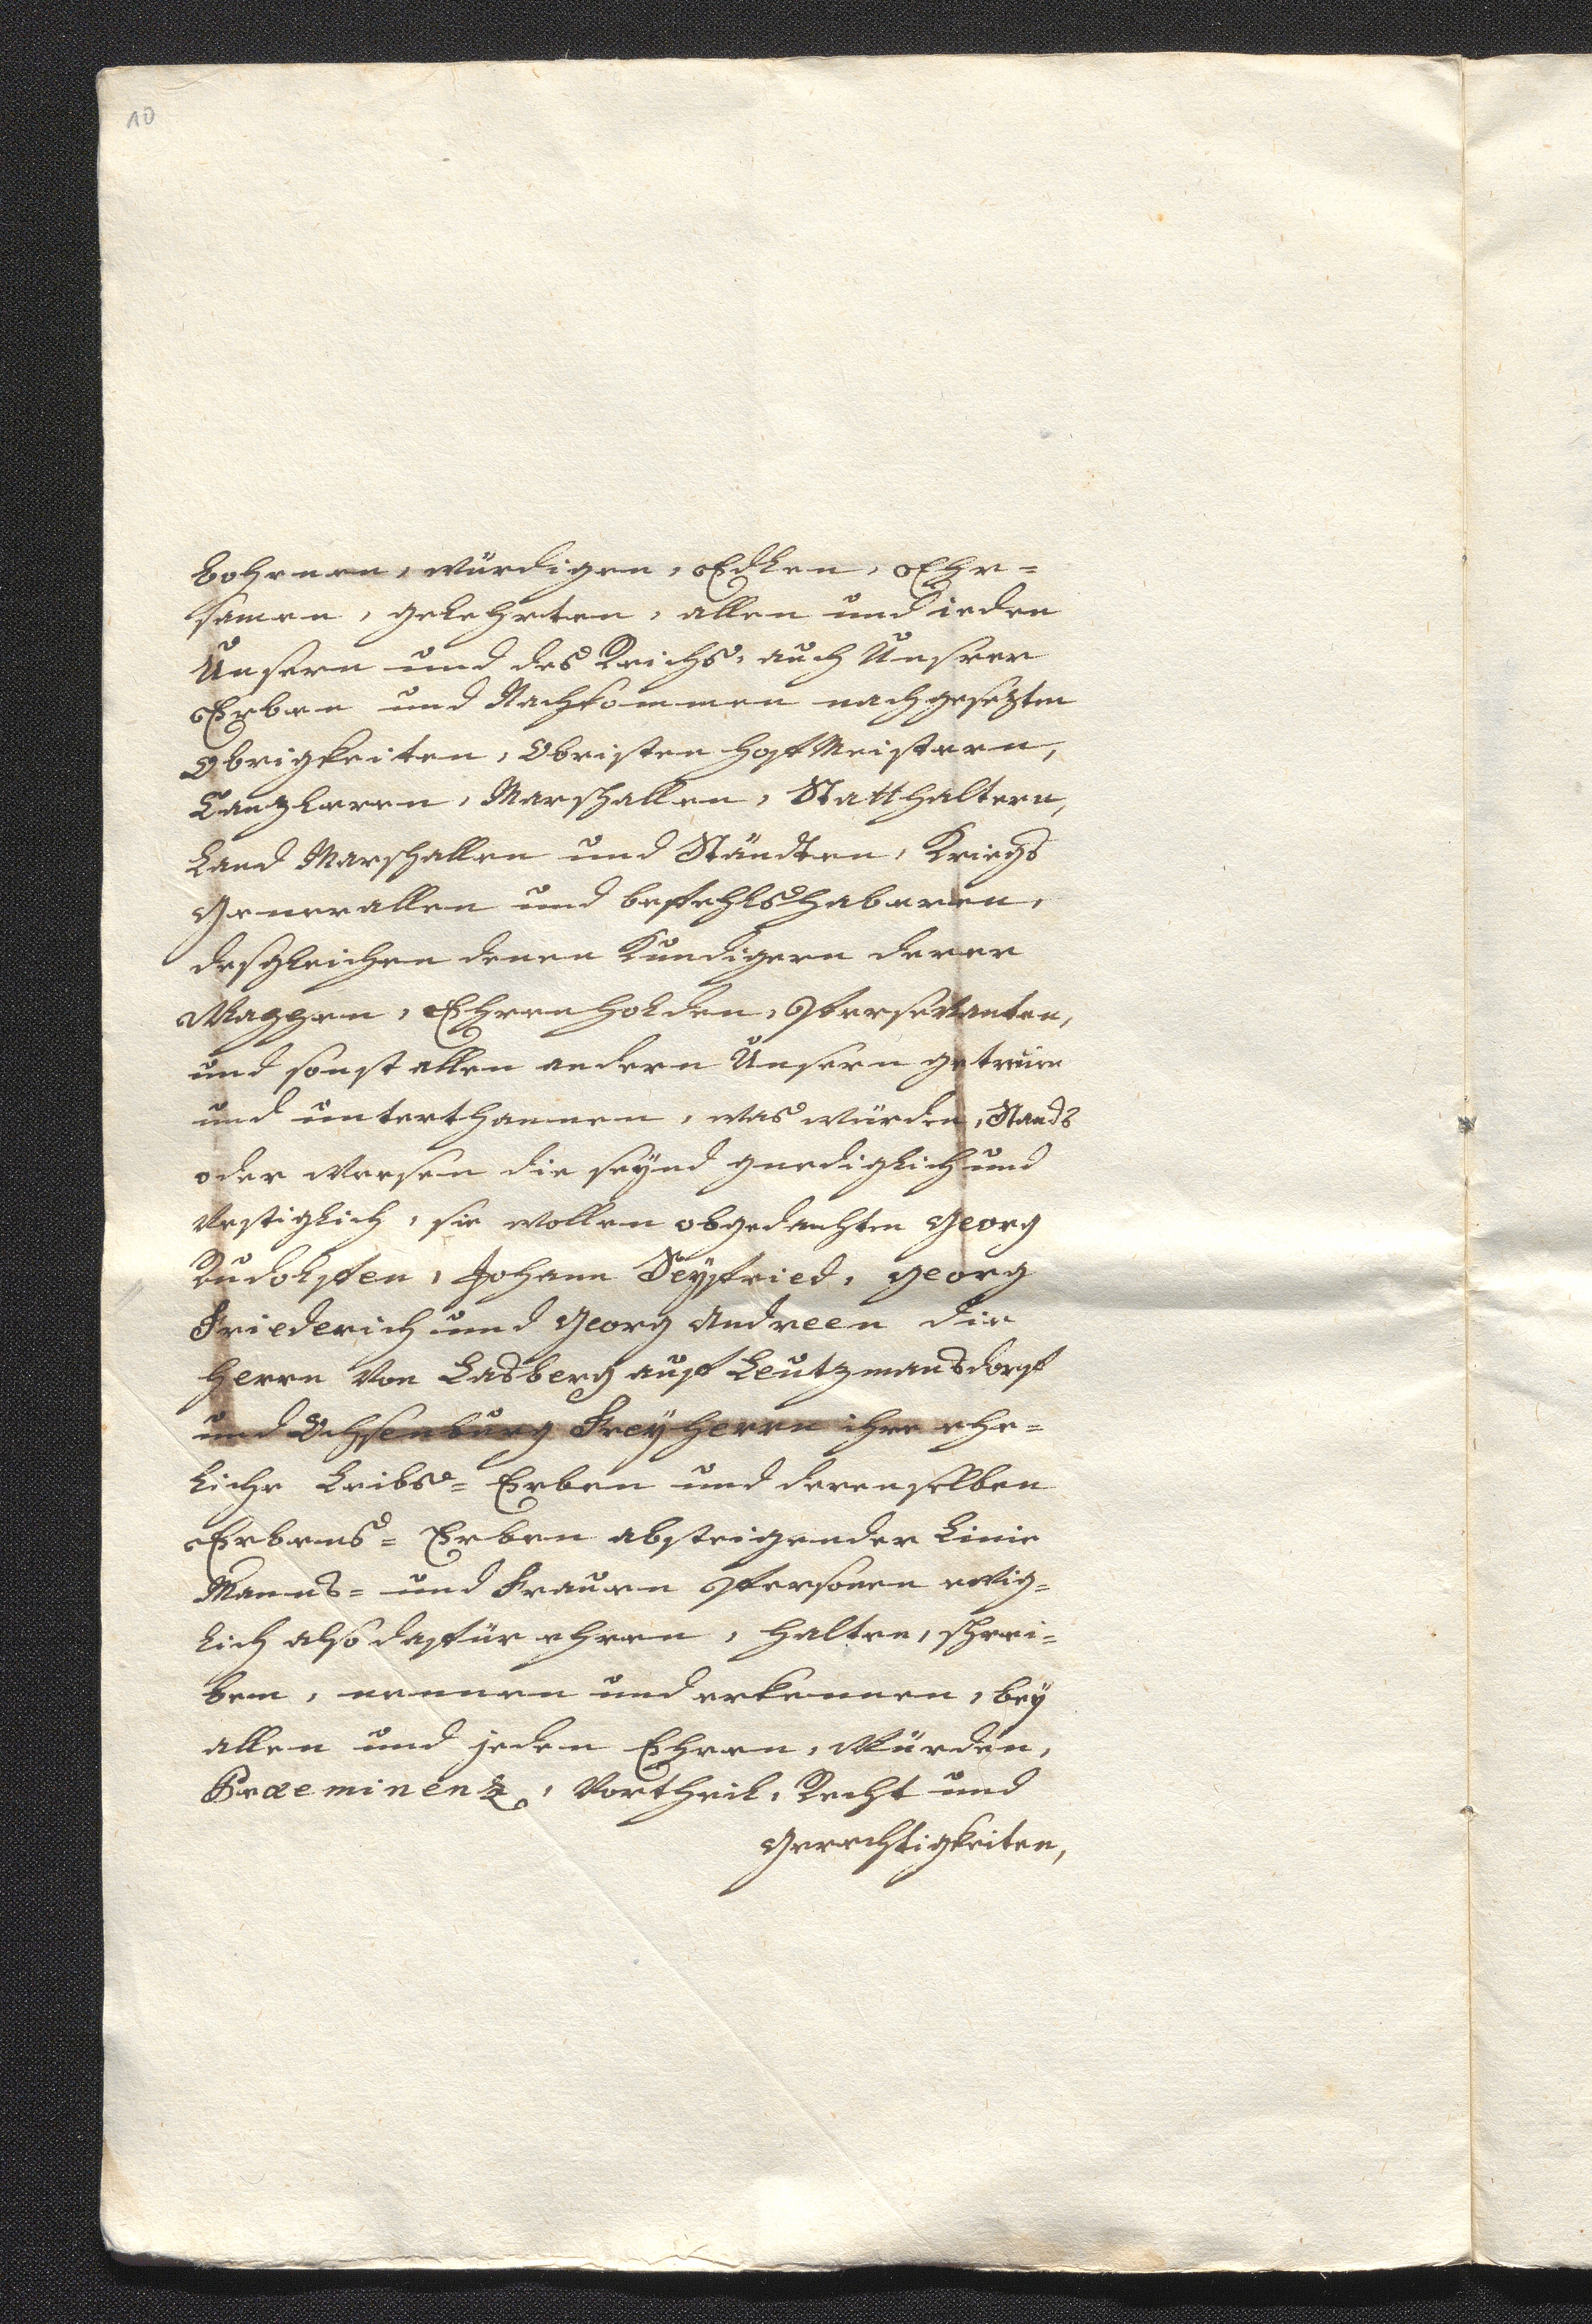 10
bohrnen, würdigen, Edlen, Ehr=
samen, gelehrten, allen und ieden
Unsern und des Reichs, auch Unserer
Erben und Nachkommen nachgesezten
Obrigkeiten, Obristen Hoff Meistern,
Canzleren, Marschallen, Statthaltern,
Land Marschallen und Ständten, Kriegs
Generallen und befehlshaberen,
desgleichen denen Kundigern derer
Wappen, Ehrenholden, Persevanten,
und sonst allen andern Unsern getreuen
und unterthannen, was würden, Stands
oder Weesen die seÿnd gnediglich und
Vestiglich, sie wollen obgedachten Georg
Rudolffen, Johann Seÿfried, Georg
Friederich und Georg Andreen die
Herrn Von Lasberg auff Leutzmansdorff
und Ochsenburg Freÿherrn ihre ehe=
liche Leibs= Erben und derenselben
Erbens= Erben absteigender Linie
Manns= und Frauen Persohnen ewig=
lich also daffür ehren, halten, schrei=
ben, nennen und erkennen, beÿ
allen und jeden Ehren, Würden,
Praeminenz, Vortheil, Recht und
Gerechtigkeiten,